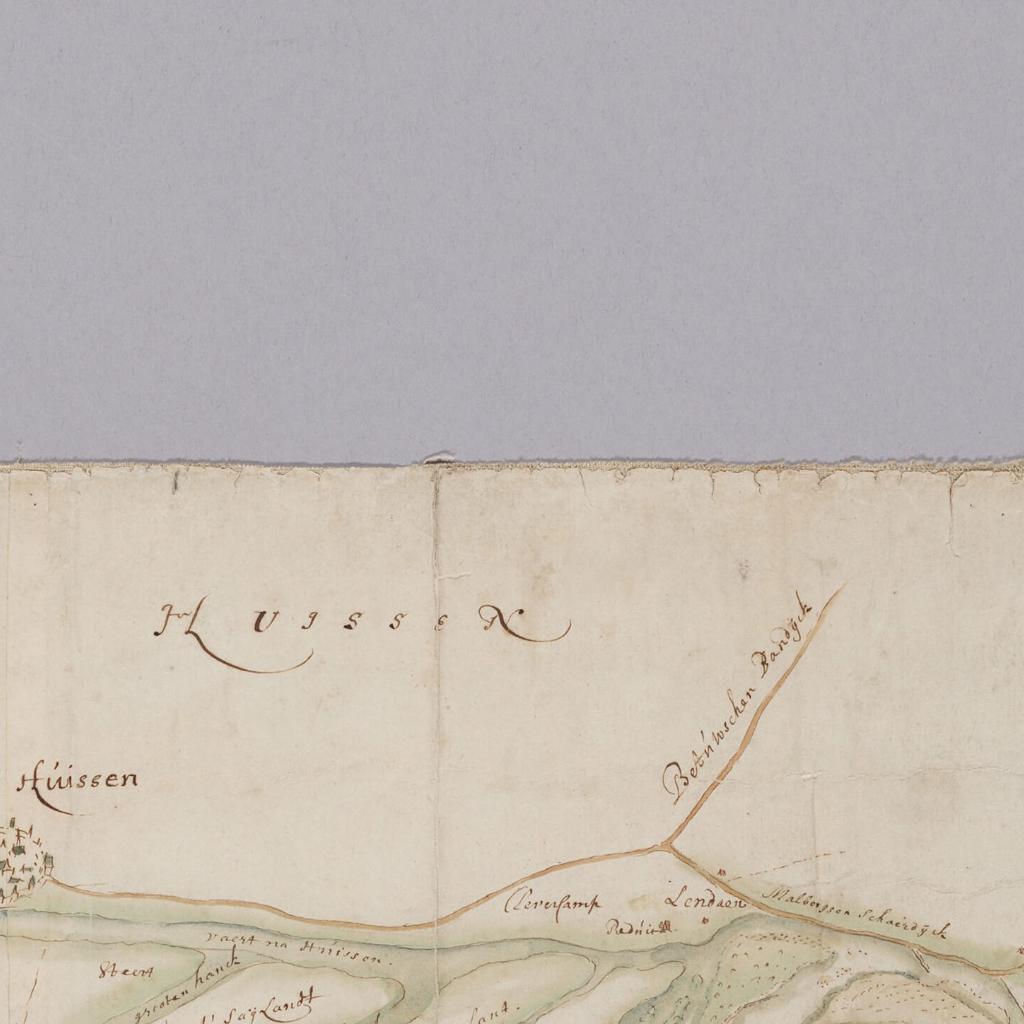 HUISSEN
Betúwschen Bandÿck
Húissen
Cleverkamp
Lendaen
Malbergsen Schaerdÿck
Redúit
Vaert na Húissen.
Steert
grooten hanck
Saÿlandt
land.